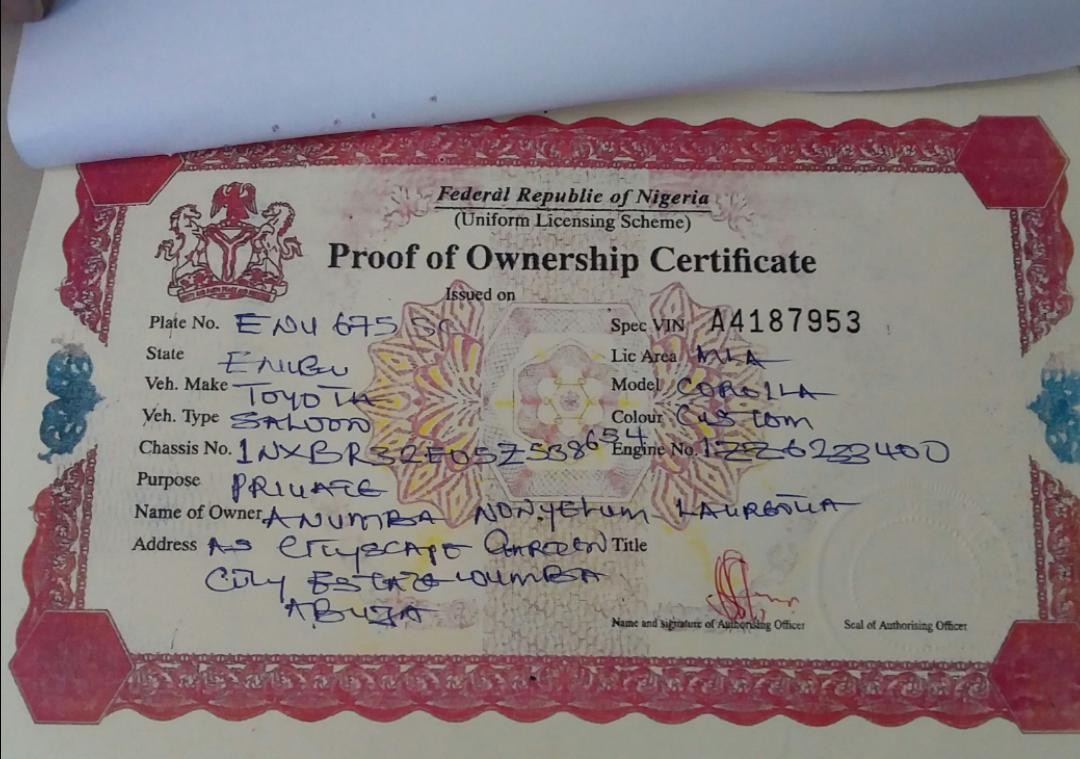 Federal Republic of Nigeria
(Uniform Licensing Scheme)
Proof of Ownership Certificate
Issued on
Plate No. ENU 675 SG
Spec VIN A4187953
State ENUGU
Lic Area
Veh. Make TOYOTA
Model COROLLA
Veh. Type SALOON
Colour Custom
Chassis No. 1NXBR32E05Z538654
Engine No. 1ZZ6233400
Purpose PRIVATE
Name of Owner ANUMBA NONYELUM LAURETTA
Address CITYSCAPE GARDEN
Title
City ESTATE
ABUJA
Name and signature of Authorising Officer
Seal of Authorising Officer